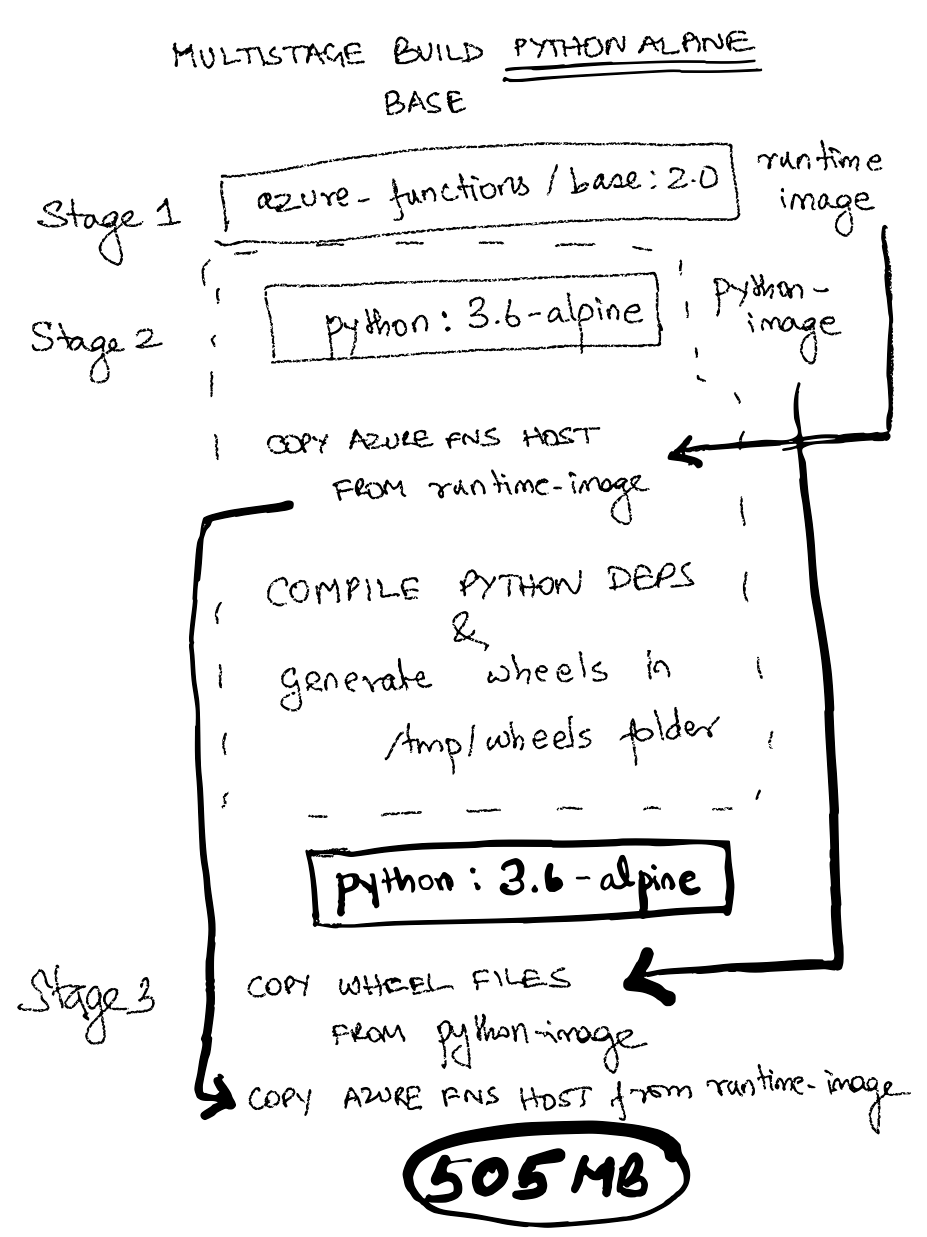 MULTISTAGE BUILD PYTHON ALPINE
BASE
Stage 1
azure-functions / base: 2.0
runtime
image
Stage 2
python: 3.6-alpine
python-
image
COPY AZURE FNS HOST
FROM runtime-image
COMPILE PYTHON DEPS
&
generate wheels in
/tmp/wheels folder
python: 3.6-alpine
Stage 3
COPY WHEEL FILES
FROM python-image
COPY AZURE FNS HOST from runtime-image
505 MB